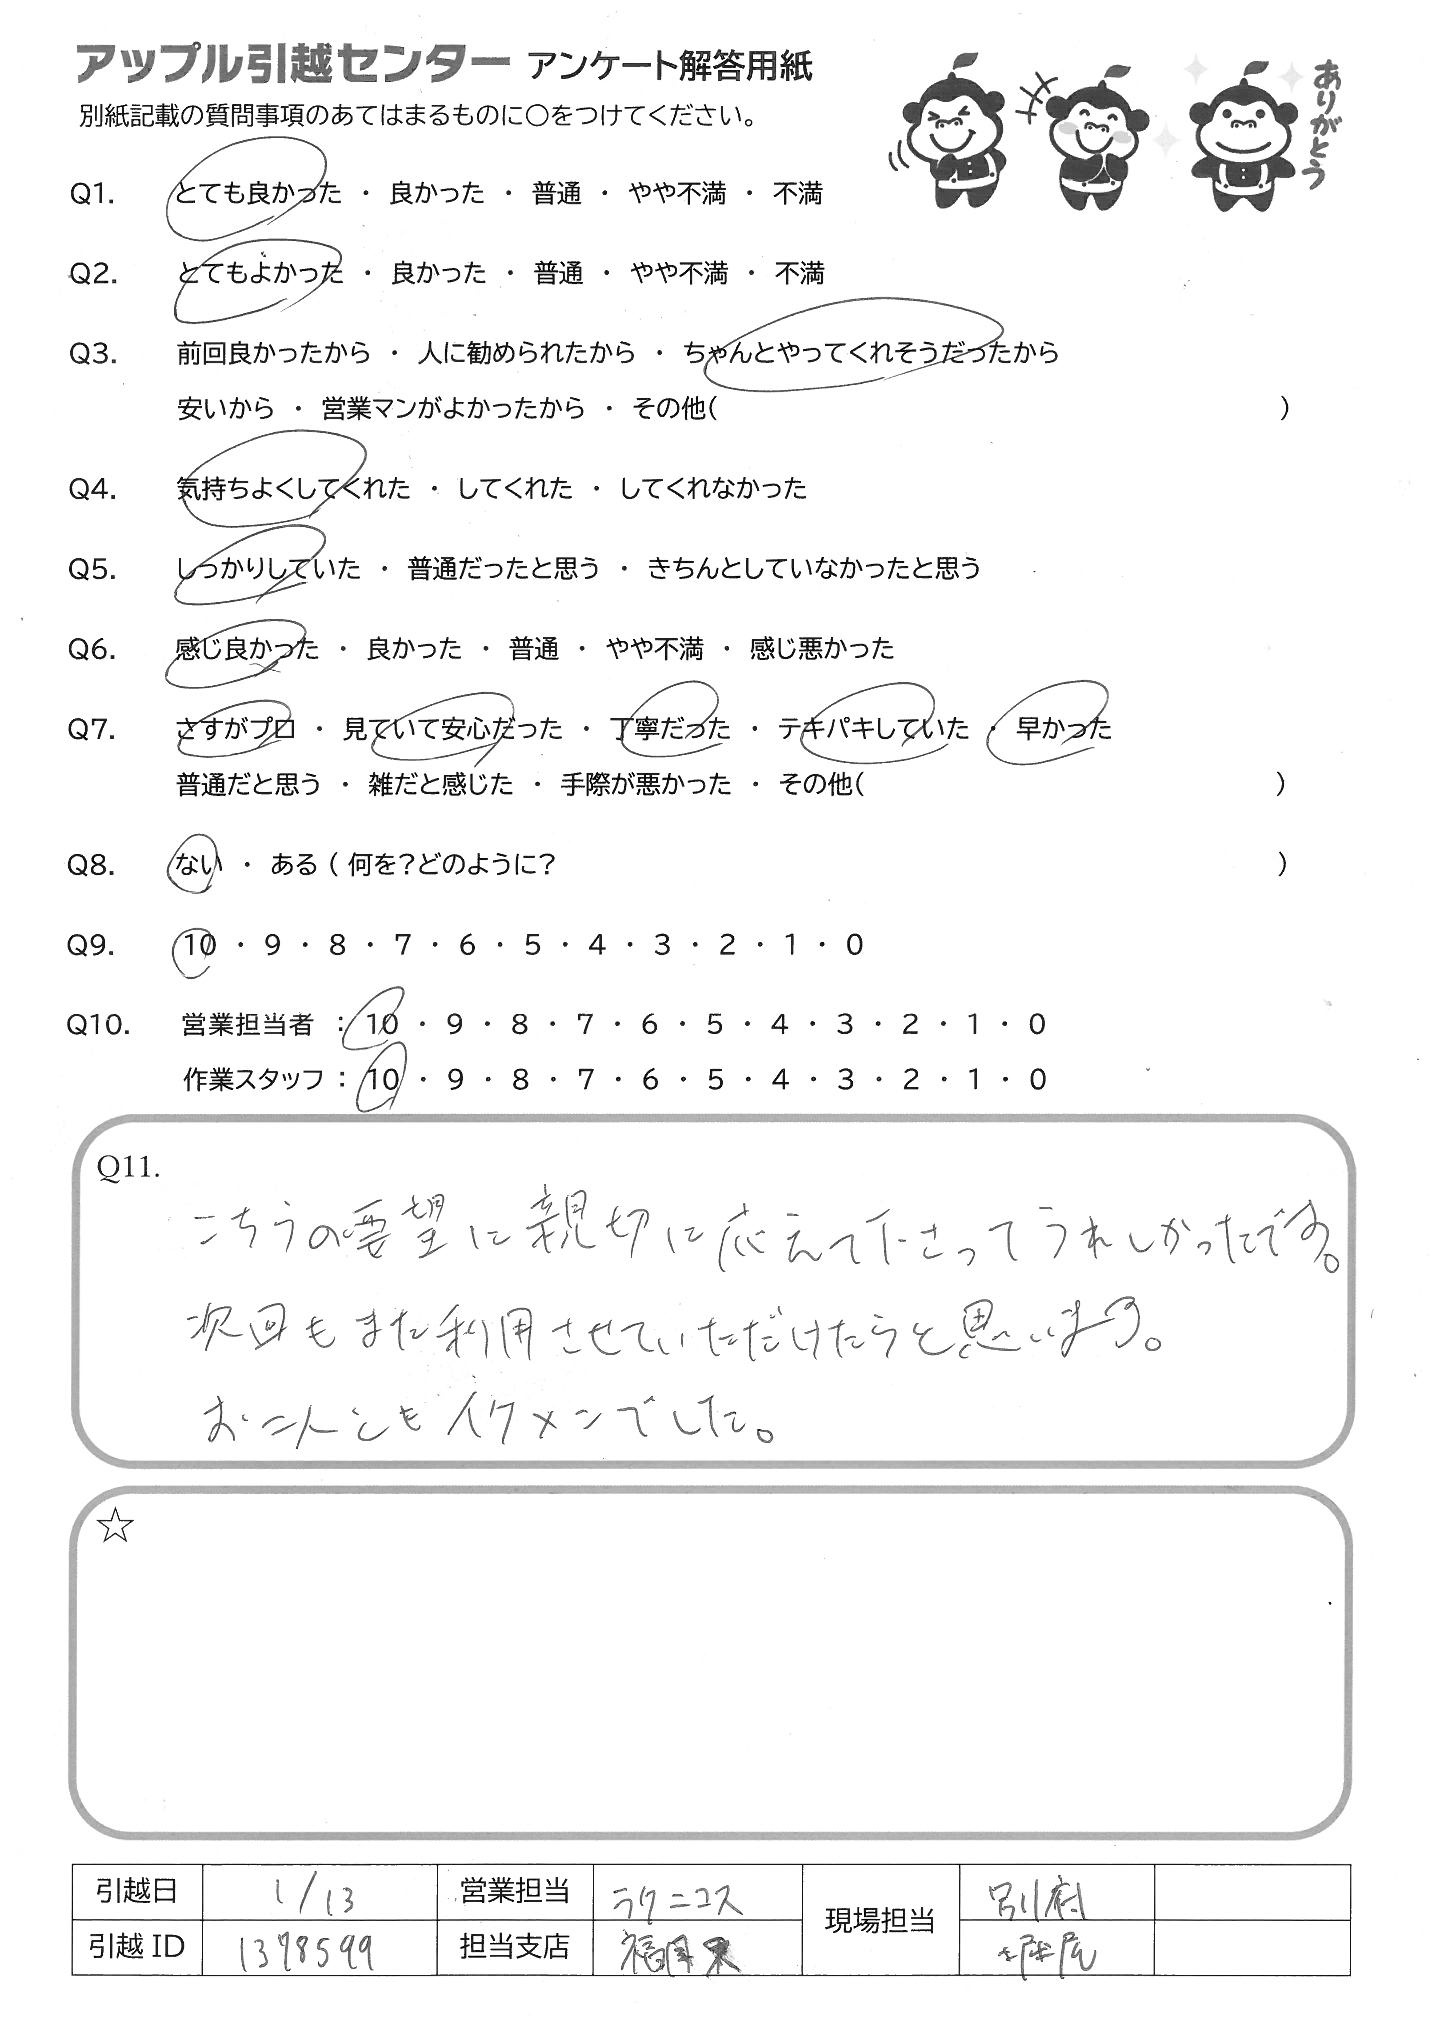 アップル引越センター アンケート解答用紙
ありがとう
別紙記載の質問事項のあてはまるものに○をつけてください。
Q1. とても良かった ・ 良かった ・ 普通 ・ やや不満 ・ 不満
Q2. とてもよかった ・ 良かった ・ 普通 ・ やや不満 ・ 不満
Q3. 前回良かったから ・ 人に勧められたから ・ ちゃんとやってくれそうだったから
安いから ・ 営業マンがよかったから ・ その他( )
Q4. 気持ちよくしてくれた ・ してくれた ・ してくれなかった
Q5. しっかりしていた ・ 普通だったと思う ・ きちんとしていなかったと思う
Q6. 感じ良かった ・ 良かった ・ 普通 ・ やや不満 ・ 感じ悪かった
Q7. さすがプロ ・ 見ていて安心だった ・ 丁寧だった ・ テキパキしていた ・ 早かった
普通だと思う ・ 雑だと感じた ・ 手際が悪かった ・ その他( )
Q8. ない ・ ある ( 何を?どのように? )
Q9. 10 ・ 9 ・ 8 ・ 7 ・ 6 ・ 5 ・ 4 ・ 3 ・ 2 ・ 1 ・ 0
Q10. 営業担当者 : 10 ・ 9 ・ 8 ・ 7 ・ 6 ・ 5 ・ 4 ・ 3 ・ 2 ・ 1 ・ 0
作業スタッフ : 10 ・ 9 ・ 8 ・ 7 ・ 6 ・ 5 ・ 4 ・ 3 ・ 2 ・ 1 ・ 0
Q11.
こちらの要望に親切に応えて下さってうれしかったです。
次回もまた利用させていただけたらと思います。
お二人ともイケメンでした。
☆
引越日 1/13 営業担当 ラクニコス 現場担当 別府
引越ID 1378599 担当支店 福岡東